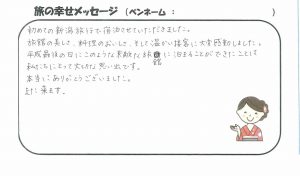 旅の幸せメッセージ （ペンネーム : ）
初めての新潟旅行で宿泊させていただきました。
旅館の美しさ、料理のおいしさ、そして温かい接客に大変感動しました。
平成最後の日にこのような素敵な旅館に泊まることができたことは
私たちにとって大切な思い出です。
本当にありがとうございました。
また来ます。